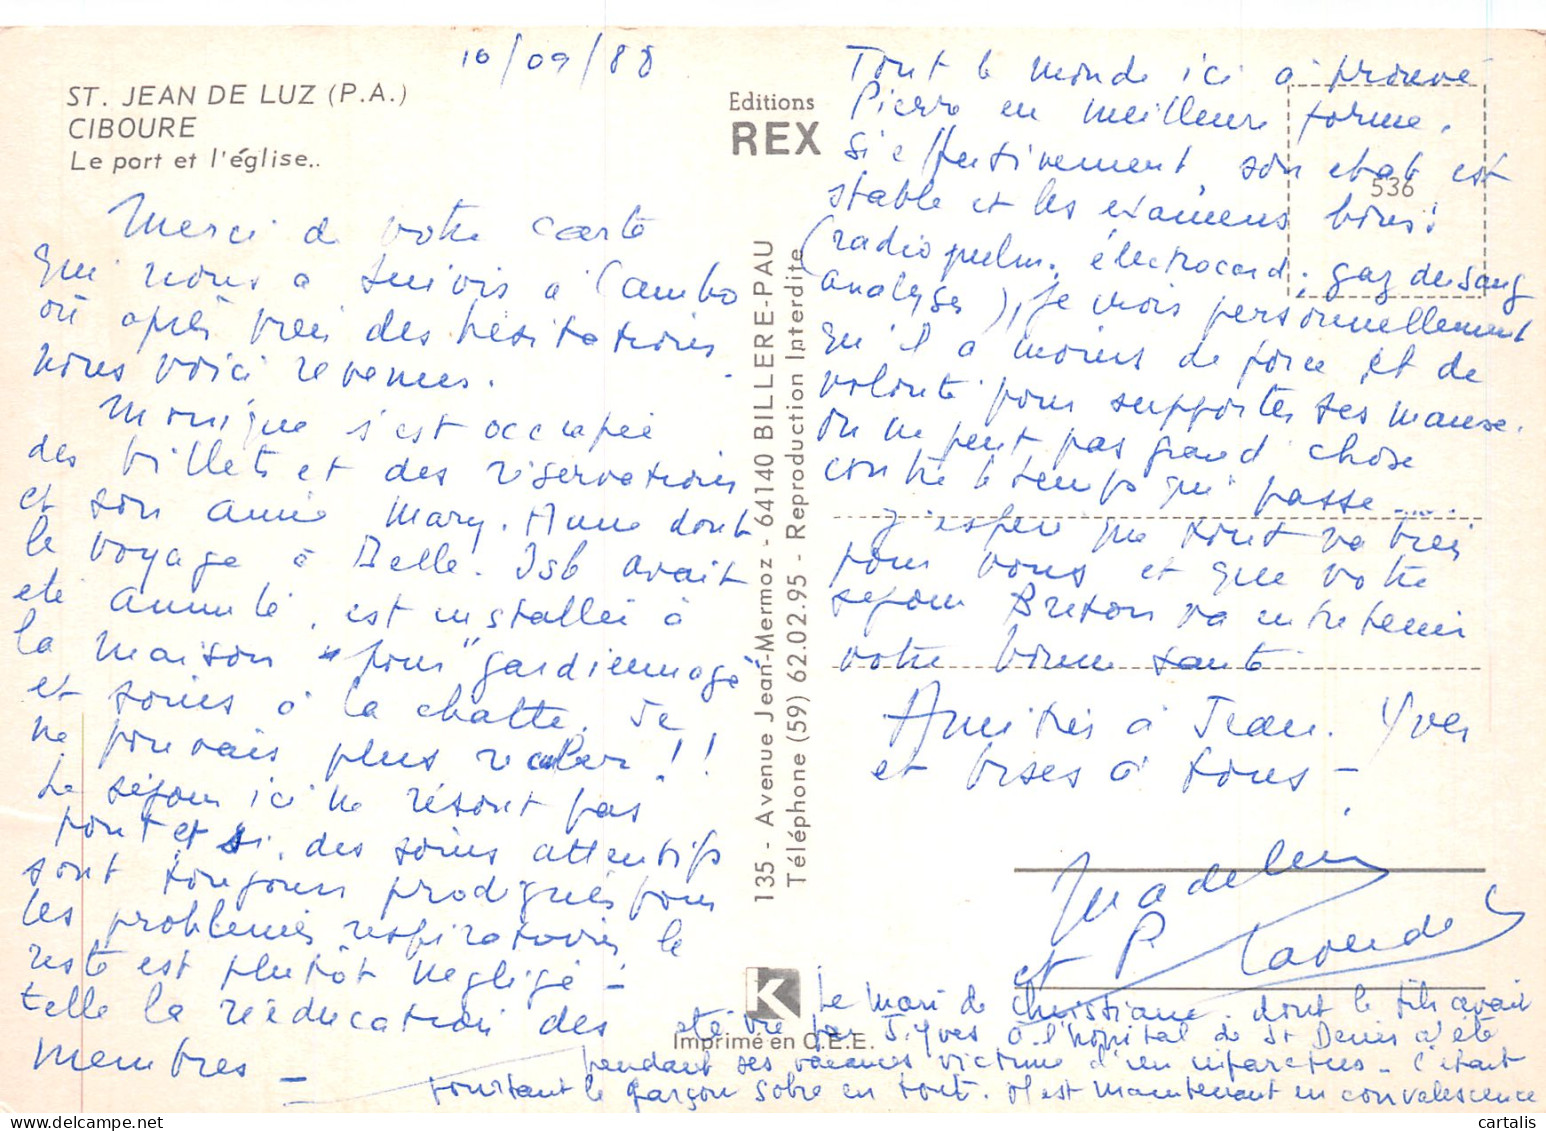 10/09/88
ST. JEAN DE LUZ (P.A.)
CIBOURE
Le port et l'église..
Merci de votre carte
qui nous a suivis à Cambo
où après bien des hésitations
nous voici revenus.
Monique s'est occupée
des billets et des réservations
et son amie Mary. Anne dont
le voyage à Belle. Isle avait
été annulé, est installée à
la maison "pour" gardiennage
et soins à la chatte. Je
ne pouvais plus reculer!!
Le séjour ici ne résout pas
tout et si, des soins attentifs
sont toujours prodigués pour
les problèmes respiratoires le
reste est plutôt négligé -
telle la rééducation des
membres -
Editions
REX
135 - Avenue Jean-Mermoz - 64140 BILLERE-PAU
Téléphone (59) 62.02.95 - Reproduction Interdite
K
Imprimé en C.E.E.
536
Tout le monde ici a trouvé
Pierre en meilleure forme.
Si effectivement, son état est
stable et les examens bons!
(radio pulm. électrocard, gaz du sang
analyses), je crois personnellement
qu'il a moins de force et de
volonté pour supporter ses maux.
On ne peut pas grand chose
contre le temps qui passe.....
J'espère que tout va bien
pour vous et que votre
séjour Breton va entretenir
votre bonne santé.
Amitiés à Jean. Yves
et bises à tous -
Madeleine
et P.
Le mari de Christiane. dont le fils avait
été vu par J. Yves à l'hôpital de St Denis a été
pendant ses vacances victime d'un infarctus - C'était
pourtant le garçon sobre en tout. Il est maintenant en convalescence
cartalis